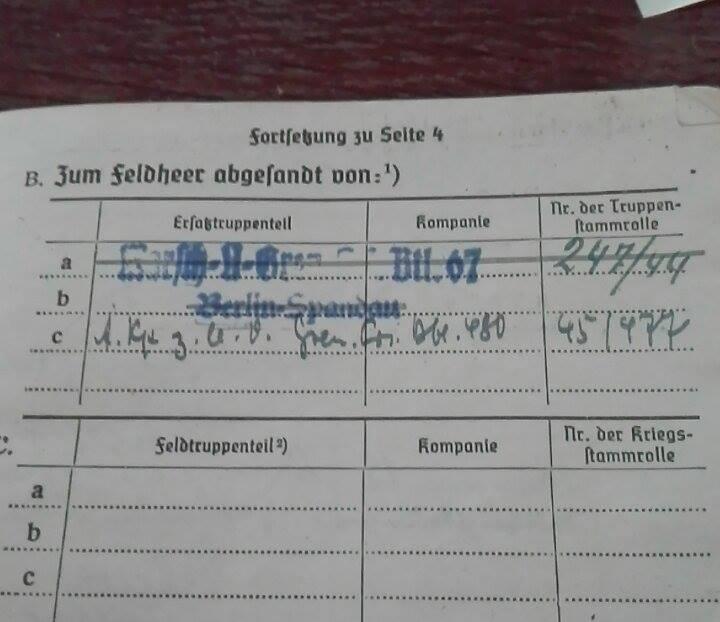 Fortsetzung zu Seite 4
B. Zum Feldheer abgesandt von:¹)
Ersatztruppenteil Kompanie Nr. der Truppen-
stammrolle
a Btl. 67 247/44
b Berlin-Spandau
c 1. Kp. z. b. V. Gren. Ers. Btl. 480 45/477
C. Feldtruppenteil²) Kompanie Nr. der Kriegs-
stammrolle
a
b
c